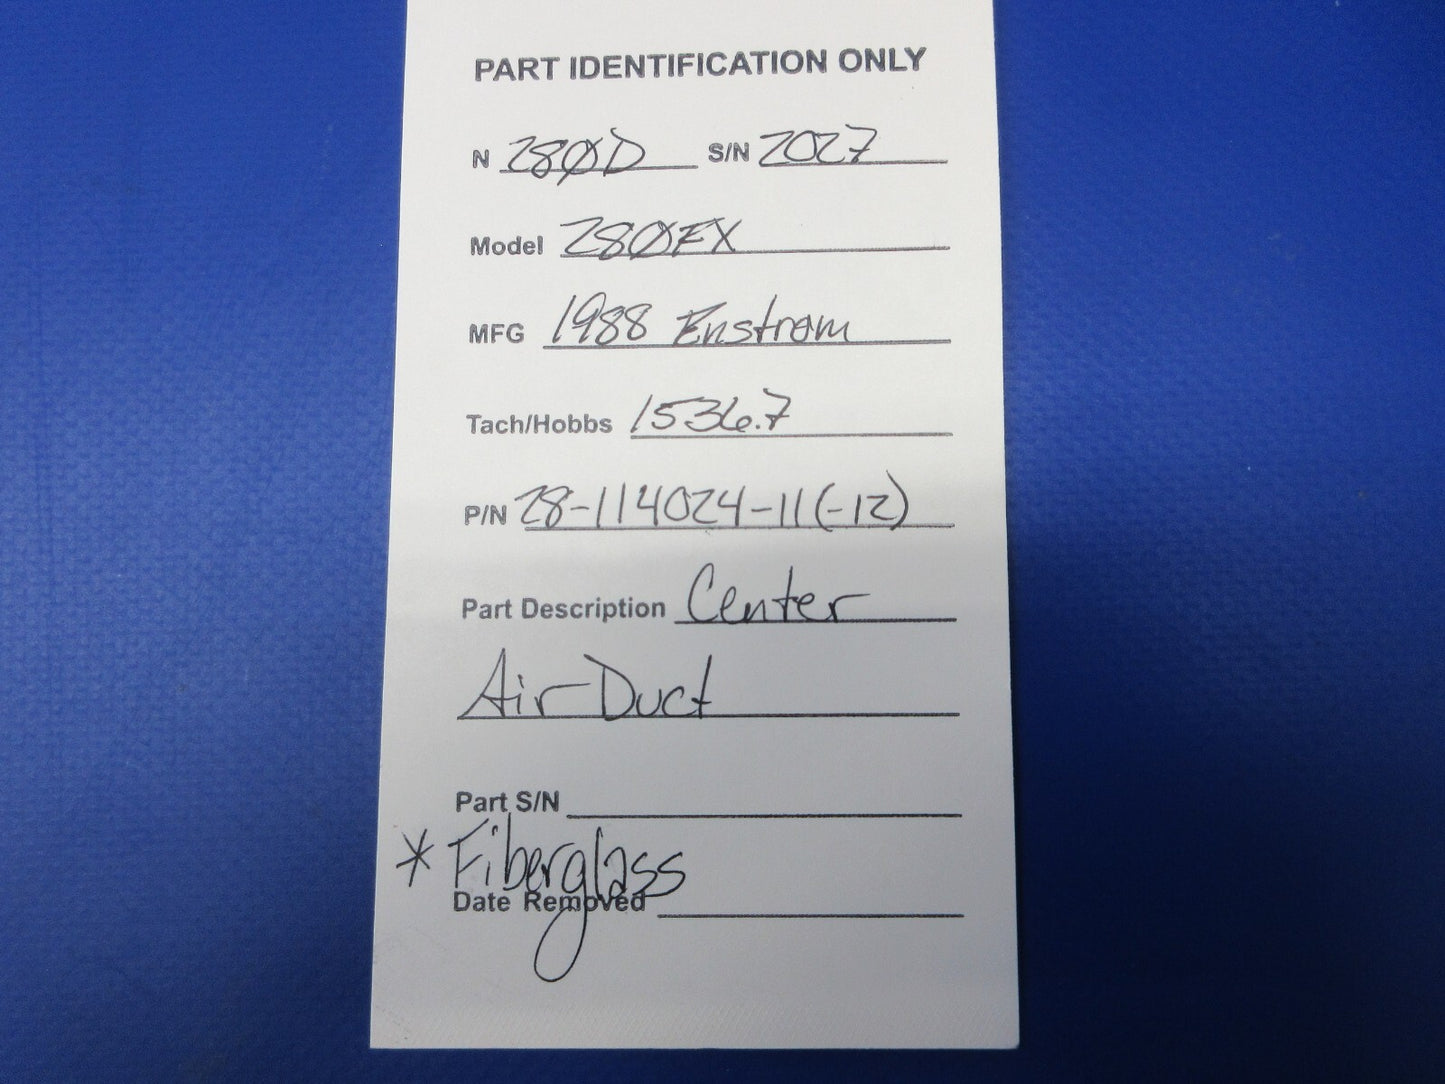 PART IDENTIFICATION ONLY
N 280D S/N 2027
Model 280FX
MFG 1988 Enstrom
Tach/Hobbs 1536.7
P/N 28-114024-11(-12)
Part Description Center
Air Duct
Part S/N
* Fiberglass
Date Removed